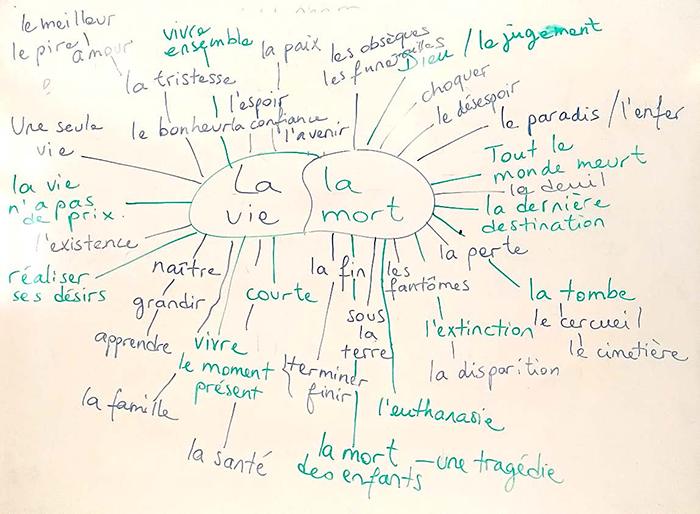 le meilleur
le pire
amour
vivre
ensemble
la paix
les obsèques
les funérailles
Dieu / le jugement
la tristesse
l'espoir
choquer
le désespoir
Une seule
vie
le bonheur
la confiance
l'avenir
le paradis / l'enfer
La
vie
la
mort
Tout le
monde meurt
le deuil
la dernière
destination
la vie
n'a pas
de prix.
l'existence
réaliser
ses désirs
naître
grandir
apprendre
la famille
courte
vivre
le moment
présent
la santé
la fin
terminer
finir
sous
la
terre
les
fantômes
la perte
la tombe
le cercueil
le cimetière
l'extinction
la disparition
l'euthanasie
la mort
des enfants
— une tragédie